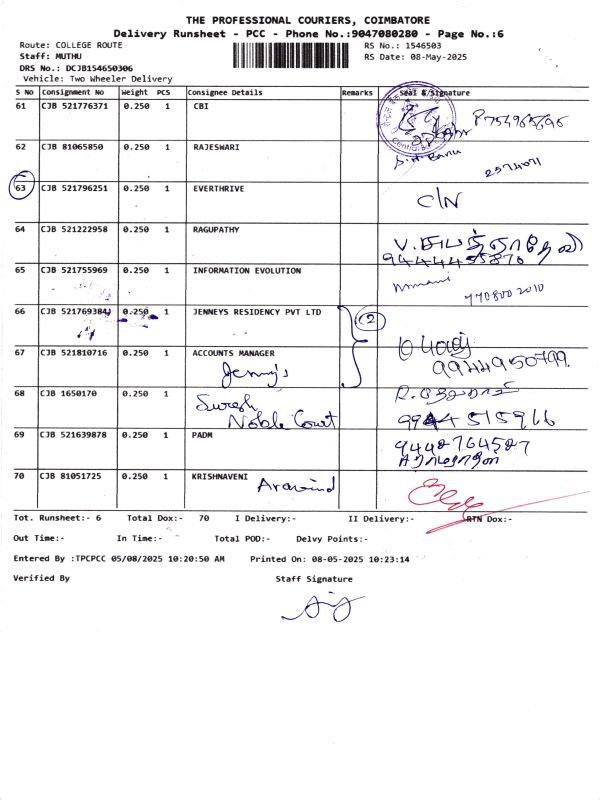 THE PROFESSIONAL COURIERS, COIMBATORE
Delivery Runsheet - PCC - Phone No.:9047080280 - Page No.:6
Route: COLLEGE ROUTE RS No.: 1546503
Staff: MUTHU RS Date: 08-May-2025
DRS No.: DCJB154650306
Vehicle: Two Wheeler Delivery
S No Consignment No Weight PCS Consignee Details Remarks Seal &/Signature
61 CJB 521776371 0.250 1 CBI
62 CJB 81065850 0.250 1 RAJESWARI
63 CJB 521796251 0.250 1 EVERTHRIVE C/N
64 CJB 521222958 0.250 1 RAGUPATHY
9444455876
65 CJB 521755969 0.250 1 INFORMATION EVOLUTION
7708002010
66 CJB 521769384 0.250 1 JENNEYS RESIDENCY PVT LTD 2
67 CJB 521810716 0.250 1 ACCOUNTS MANAGER
Jenny's 9944950799
68 CJB 1650170 0.250 1 Suresh
Noble Court 9944515916
69 CJB 521639878 0.250 1 PADM 9442764527
70 CJB 81051725 0.250 1 KRISHNAVENI
Aravind
Tot. Runsheet:- 6 Total Dox:- 70 I Delivery:- II Delivery:- RTN Dox:-
Out Time:- In Time:- Total POD:- Delvy Points:-
Entered By :TPCPCC 05/08/2025 10:20:50 AM Printed On: 08-05-2025 10:23:14
Verified By Staff Signature